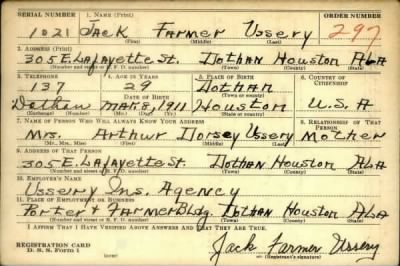 SERIAL NUMBER 1. NAME (Print) ORDER NUMBER
1021 Jack Farmer Ussery 297
(First) (Middle) (Last)
2. ADDRESS (Print)
305 E. Lafayette St. Dothan Houston Ala
(Number and street or R. F. D. number) (Town) (County) (State)
3. TELEPHONE 4. AGE IN YEARS 5. PLACE OF BIRTH 6. COUNTRY OF CITIZENSHIP
137 29 Dothan
DATE OF BIRTH (Town or county)
Dothan Mar. 8, 1911 Houston U.S.A
(Exchange) (Number) (Mo.) (Day) (Yr.) (State or country)
7. NAME OF PERSON WHO WILL ALWAYS KNOW YOUR ADDRESS 8. RELATIONSHIP OF THAT PERSON
Mrs. Arthur Dorsey Ussery Mother
(Mr., Mrs., Miss) (First) (Middle) (Last)
9. ADDRESS OF THAT PERSON
305 E. Lafayette St. Dothan Houston Ala
(Number and street or R. F. D. number) (Town) (County) (State)
10. EMPLOYER'S NAME
Ussery Ins. Agency
11. PLACE OF EMPLOYMENT OR BUSINESS
Porter & Farmer Bldg. Dothan Houston Ala
(Number and street or R. F. D. number) (Town) (County) (State)
I AFFIRM THAT I HAVE VERIFIED ABOVE ANSWERS AND THAT THEY ARE TRUE.
REGISTRATION CARD
D. S. S. FORM 1
Jack Farmer Ussery
(Registrant's signature)